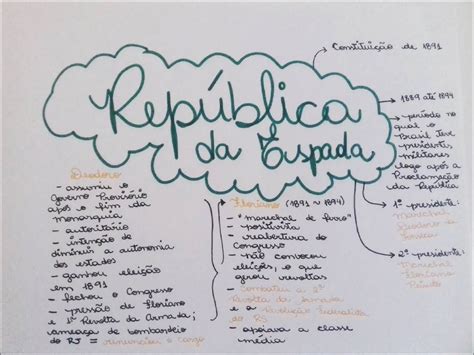 República
da Espada
Constituição de 1891
1889 até 1894
período no
qual o
Brasil teve
presidentes
militares
logo após a
Proclamação
da República
1º presidente:
marechal
Deodoro da
Fonseca
2º presidente:
Marechal
Floriano
Peixoto
Deodoro
- assumiu o
Governo Provisório
após o fim da
monarquia
- autoritário
- intenção de
diminuir a autonomia
dos estados
- ganhou eleição
em 1891
- fechou o Congresso
- pressão de Floriano
e 1ª Revolta da Armada;
ameaça de bombardeio
do RJ = renunciou ao cargo
Floriano (1891 ~ 1894)
- "marechal de ferro"
- positivista
- reabertura do
Congresso
- não convocou
eleições, o que
gerou revoltas
- Combateu a 2ª
Revolta da Armada
e a Revolução Federalista
do RS
- apoiava a classe
média